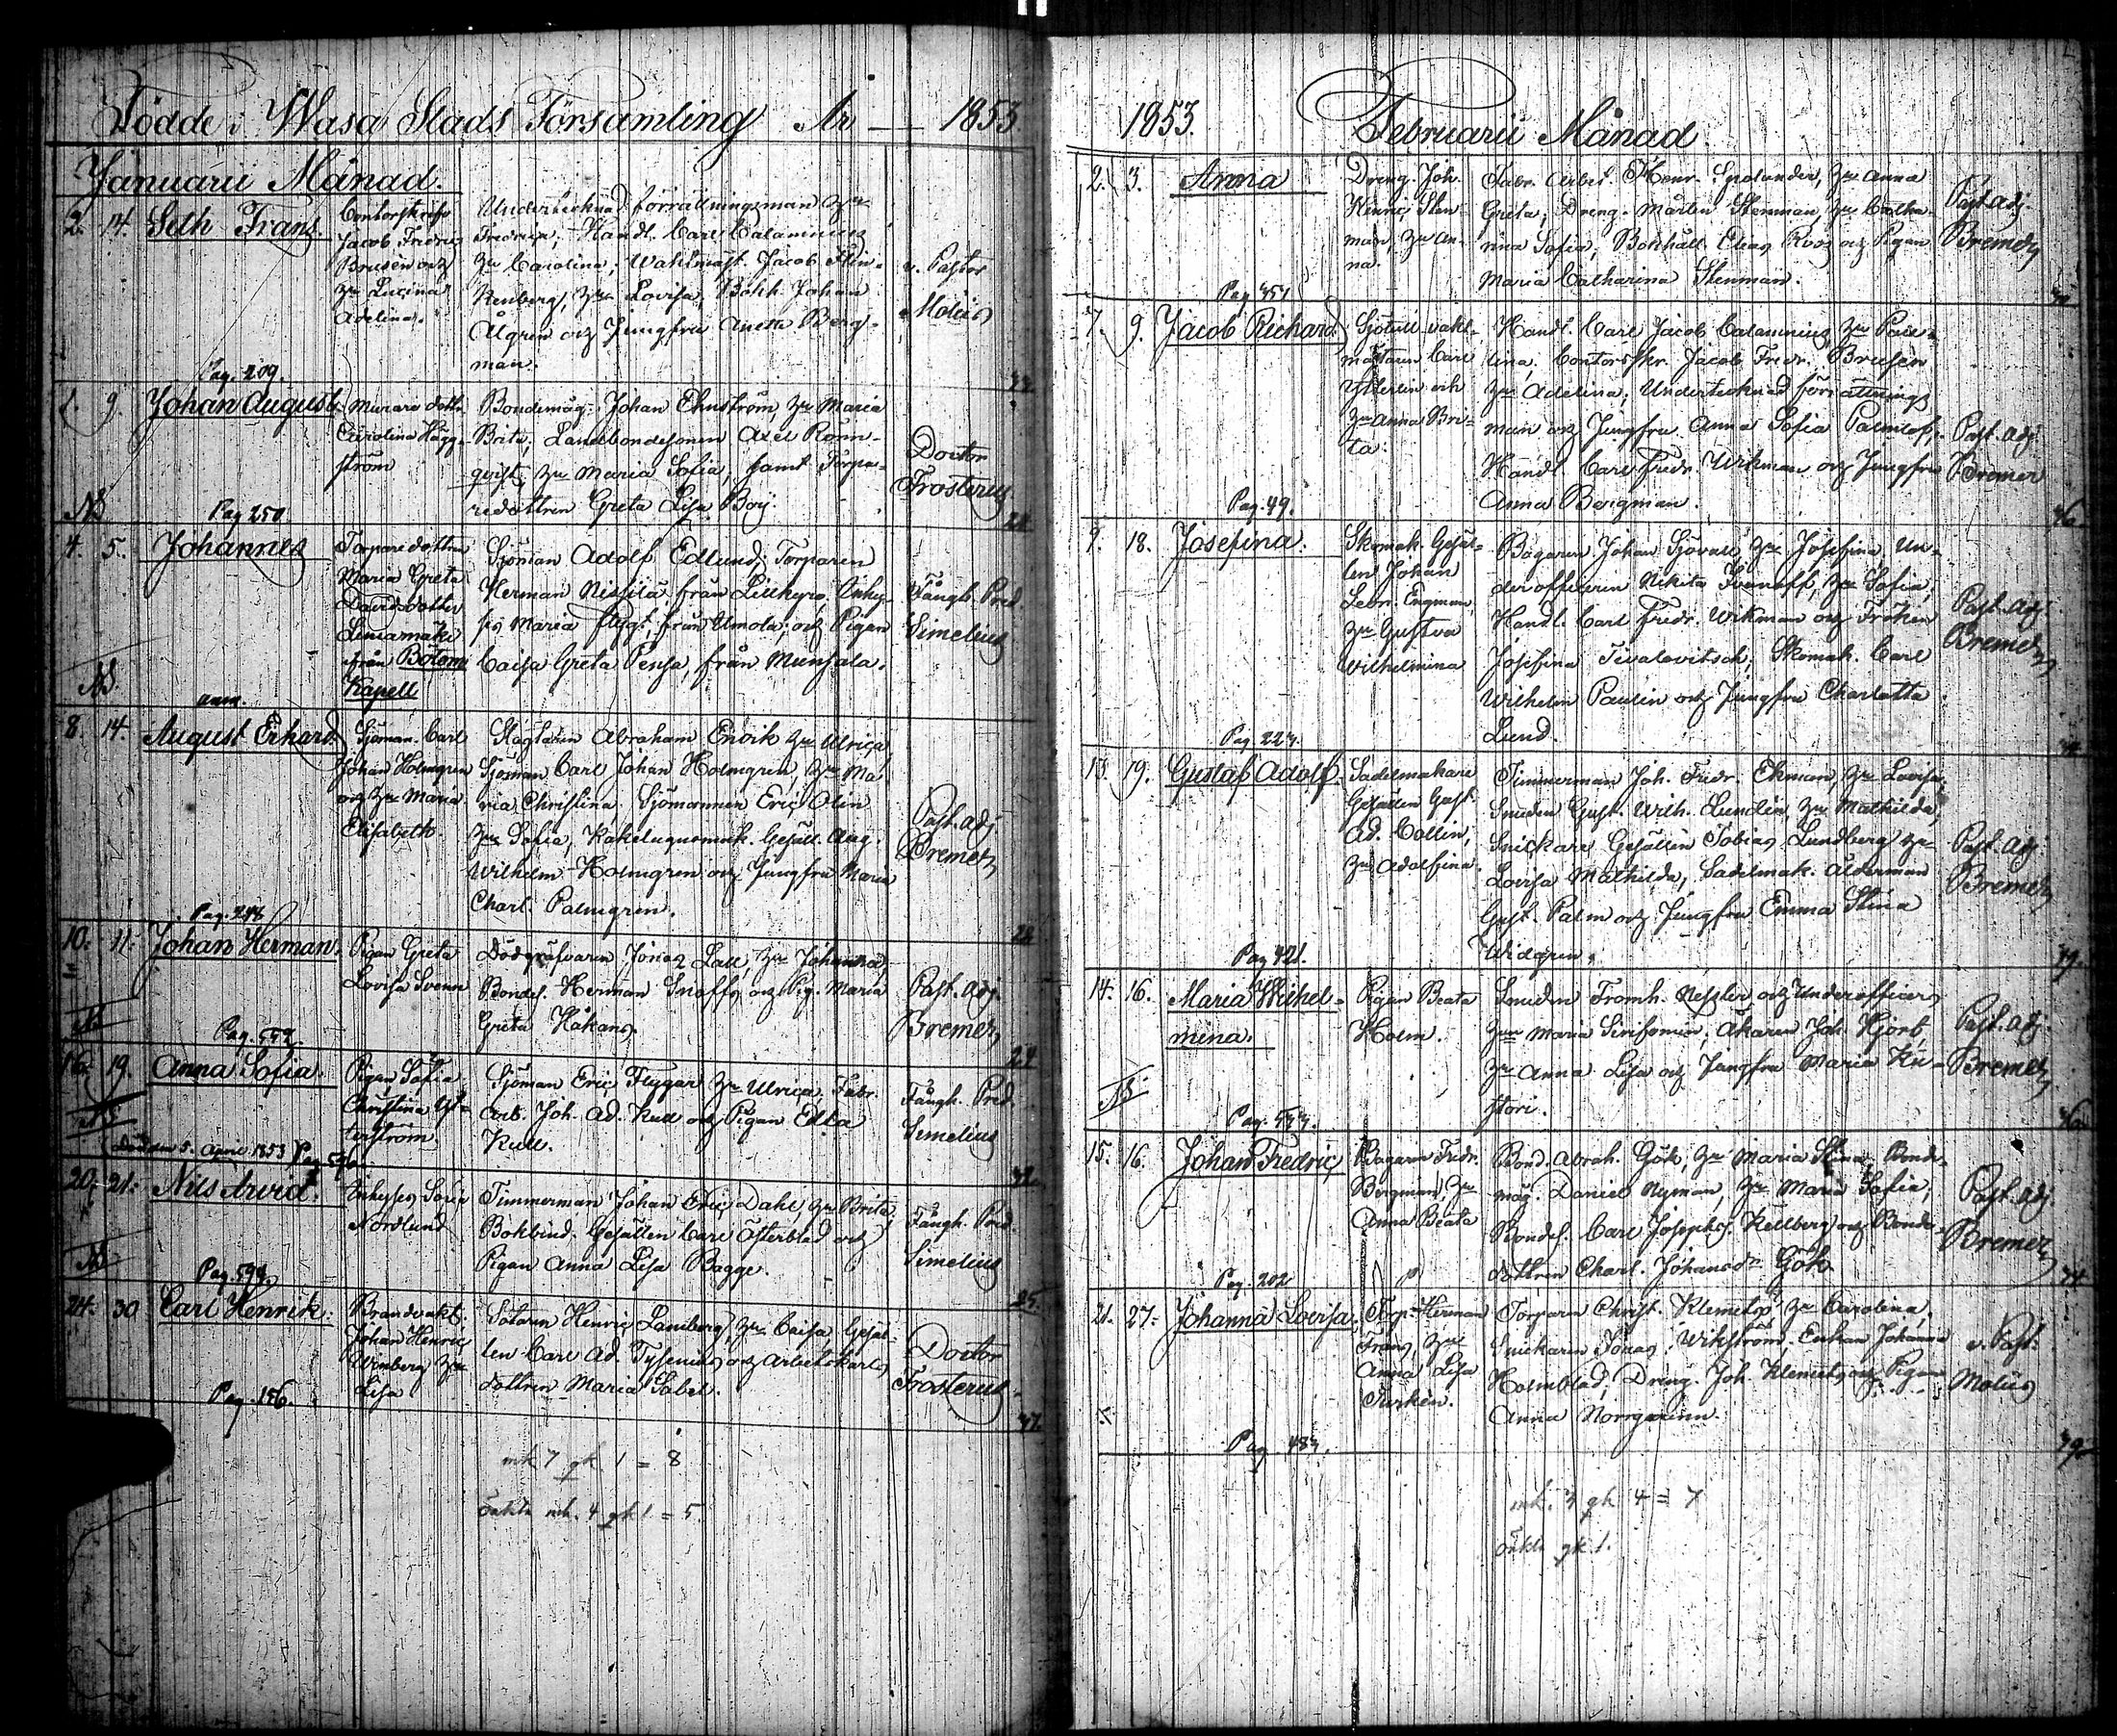 Födde i Wasa Stads Församling År — 1853
Januarii Månad.
2. 14. Seth Frans.
Contorskrifv.
Jacob Fredric
Brusén och
hu Lucina
Adelina.
Undertecknad förrättningsman hu
Fredrica; Handl. Carl Calamnius
hu Carolina; Wahlmast. Jacob Flin-
kenberg, hu Lovisa; Bokh. Johan
Ålgren och Jungfru Aneta Berg-
man.
v. Pastor
Molius
Pag. 209.
9. Johan August
Murare dottr.
Carolina Hägg-
ström
Bondemåg: Johan Ehnström hu Maria
Brita; Landbondesonen Axel Rönn-
qvist, hu Maria Sofia; samt Torpa-
redottren Greta Lisa Boij.
Doctor
Frosterus
NB
Pag 250.
4. 5. Johannes
Torparedottren
Maria Greta
Davidsdotter
från Bötom
Kapell
Sjöman Adolf Edlund; Torparen
Herman Nissilä från Lillkyro, Inhy-
ses Maria Flygt, från Umola; och Pigan
Caisa Greta Pensa, från Munsala.
Fångh. Pred.
Simelius
NB
ann.
8. 14. August Erhard
Sjöman Carl
Johan Holmgren
och hu Maria
Elisabeth.
Slagtaren Abraham Envik hu Ulrica,
Sjöman Carl Johan Holmgren, hu Ma-
ria Christina. Sjömannen Eric Olin
hu Sofia, Kakelugnsmak. Gesäll. Aug.
Wilhelm Holmgren och Jungfru Maria
Charl. Palmgren.
Past. adj.
Bremer
Pag. 248
28
10. 11. Johan Herman.
Pigan Greta
Lovisa Svenn
Dödgräfvaren Jonas Lall, hu Johanna,
Bondes. Herman Snaffs och Pig. Maria
Greta Håkans.
Past. adj.
Bremer
Pag. 552.
24
16. 19. Anna Sofia.
Pigan Sofia
Christina Ös-
terström.
Sjöman Eric Flygar hu Ulrica, Fabr.
arb. Joh. Ad. Kull och Pigan Edla
Kull.
Fångh. Pred.
Simelius
NB
Död den 5. April 1853
20. 21. Nils Arvid.
Inhyses Sofia
Nordlund
Timmerman Johan Eric Dahl, hu Brita,
Bokbind. Gesällen Carl Österblad och
Pigan Anna Lisa Bagge.
Fångh. Pred.
Simelius
NB
Pag. 594.
25.
24. 30 Carl Henrik.
Brandvakt.
Johan Henric
Wenberg hu
Lisa
Sotaren Henric Lamberg, hu Caisa, Gesäl-
len Carl Ad. Tysenius och Arbetskarls
dottren Maria Sabel.
Doctor
Frosterus.
Pag. 156.
47.
mk 7 qk 1 = 8
oäkta mk. 4 qk 1 = 5
1853. Februarii Månad.
2. 3. Anna
Dreng. Joh.
Henric Sten-
man, hu An-
na.
Fabr. Arbet. Henr. Spolander, hu Anna
Greta; Dreng. Mårten Stenman, hu Catha-
rina Sofia; Bokhåll. Elias Roos och Pigan
Maria Catharina Stenman.
Past. adj.
Bremer
Pag 351
7. 9. Jacob Richard
Sjötull vakt-
mästaren Carl
Ytterlin och
hu Anna Bri-
ta.
Handl. Carl Jacob Calamnius, hu Pau-
lina, Contorsskr. Jacob Fredr. Brusén
hu Adelina; Undertecknad förrättnings
man och Jungfru Anna Sofia Palmlöf,
Handl. Carl Fredr. Wikman och Jungfru
Anna Bergman.
Past. adj.
Bremer
Pag. 49.
36
9. 18. Josefina.
Skomak. Gesäl-
len Johan
Leon. Engman,
hu Gustva
Wilhelmina
Bagaren Johan Sjövall, hu Josefina, Un-
derofficeren Nikita Ivanoff, hu Sofia,
Handl. Carl Fredr. Wikman och Fröken
Josefina Tevalovitsch, Skomak. Carl
Wilhelm Paulin och Jungfru Charlotta
Lund.
Past. adj.
Bremer
Pag 223.
13. 19. Gustaf Adolf.
Sadelmakare
Gesällen Gust.
Ad. Collin,
hu Adolfina.
Timmerman Joh. Fredr. Ekman, hu Lovisa,
Smeden Gust. Wilh. Lundin, hu Mathilda,
Snickare Gesällen Tobias Lundberg hu
Lovisa Mathilda, Sadelmak. Ålderman
Gust. Palm och Jungfru Emma Stina
Widgren.
Past. adj.
Bremer
Pag 421.
39.
14. 16. Maria Wilhel-
mina.
Pigan Beata
Holm.
Smeden Fromh. Nessler och Underofficers
hu Maria Sirifomin; Åkaren Joh. Hjort,
hu Anna Lisa och Jungfru Maria Ku-
stori.
Past. adj.
Bremer
NB
Pag. 533.
36
15. 16. Johan Fredric
Bagaren Fredr.
Bergman, hu
Anna Beata
Bond. Abrah. Gök, hu Maria Stina, Bonde-
måg. Daniel Nyman, hu Maria Sofia,
Bondes. Carl Josephs. Kellberg och Bonde-
dottren Charl. Johansdr Gök.
Past. adj.
Bremer
Pag. 202
21. 27. Johanna Lovisa.
Torp. Herman
Frans, hu
Anna Lisa
Turkén.
Torparen Christ. Klemets, hu Carolina,
Snickaren Jonas Wikström, Enkan Johanna
Holmblad, Dreng. Joh. Klemets och Pigan
Anna Norrgrann.
v. Past.
Molius
Pag 483.
39
mk. 3 qk 4 = 7
oäkta qk 1.